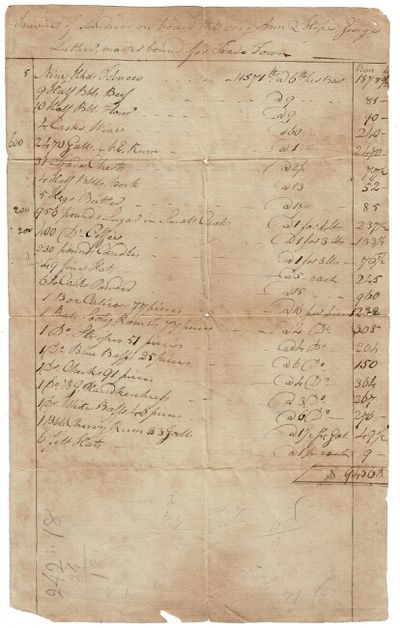 Invoice of Sundries on board the Brig Ann & Hope George
Luther master bound for Trade Town
Bars
5 Nine Hhds Tobacco 11571 lb @ 6 lb per Bar
9 Half Bbls Beef @ 9 81
10 Half Bbls Flour @ 9 90
4 Casks Wine @ 60 240
600 2470 Galls N.E. Rum @ 1 2470
Chests
4 Half Bbls Pork @ 13 52
5 Kegs Butter @ 17 85
200 950 pounds Sugar in Small Casks @ 1 for 4 lbs 237½
200 400 Do Coffee @ 1 for 3 lbs 133⅓
230 pounds Candles @ 1 for 3 lbs 76⅔
49 fine Hats @ 5 each 245
64 Casks Powder @ 15 960
1 Box Calicoe 77 pieces 1232
1 Bale Romals 77 pieces @ 4 Do 308
1 Do Stripes 51 pieces @ 4 Do 204
1 Do Blue Baffs 25 pieces @ 6 Do 150
1 Do Checks 91 pieces @ 4 Do 364
1 Do 89 Handkerchiefs @ 3 Do 267
1 Do White Baffs 46 pieces @ 6 Do 276
1 Bbl Cherry Rum 33 Galls @ 1½ per Gal 49½
6 Felt Hats @ 1½ each 9